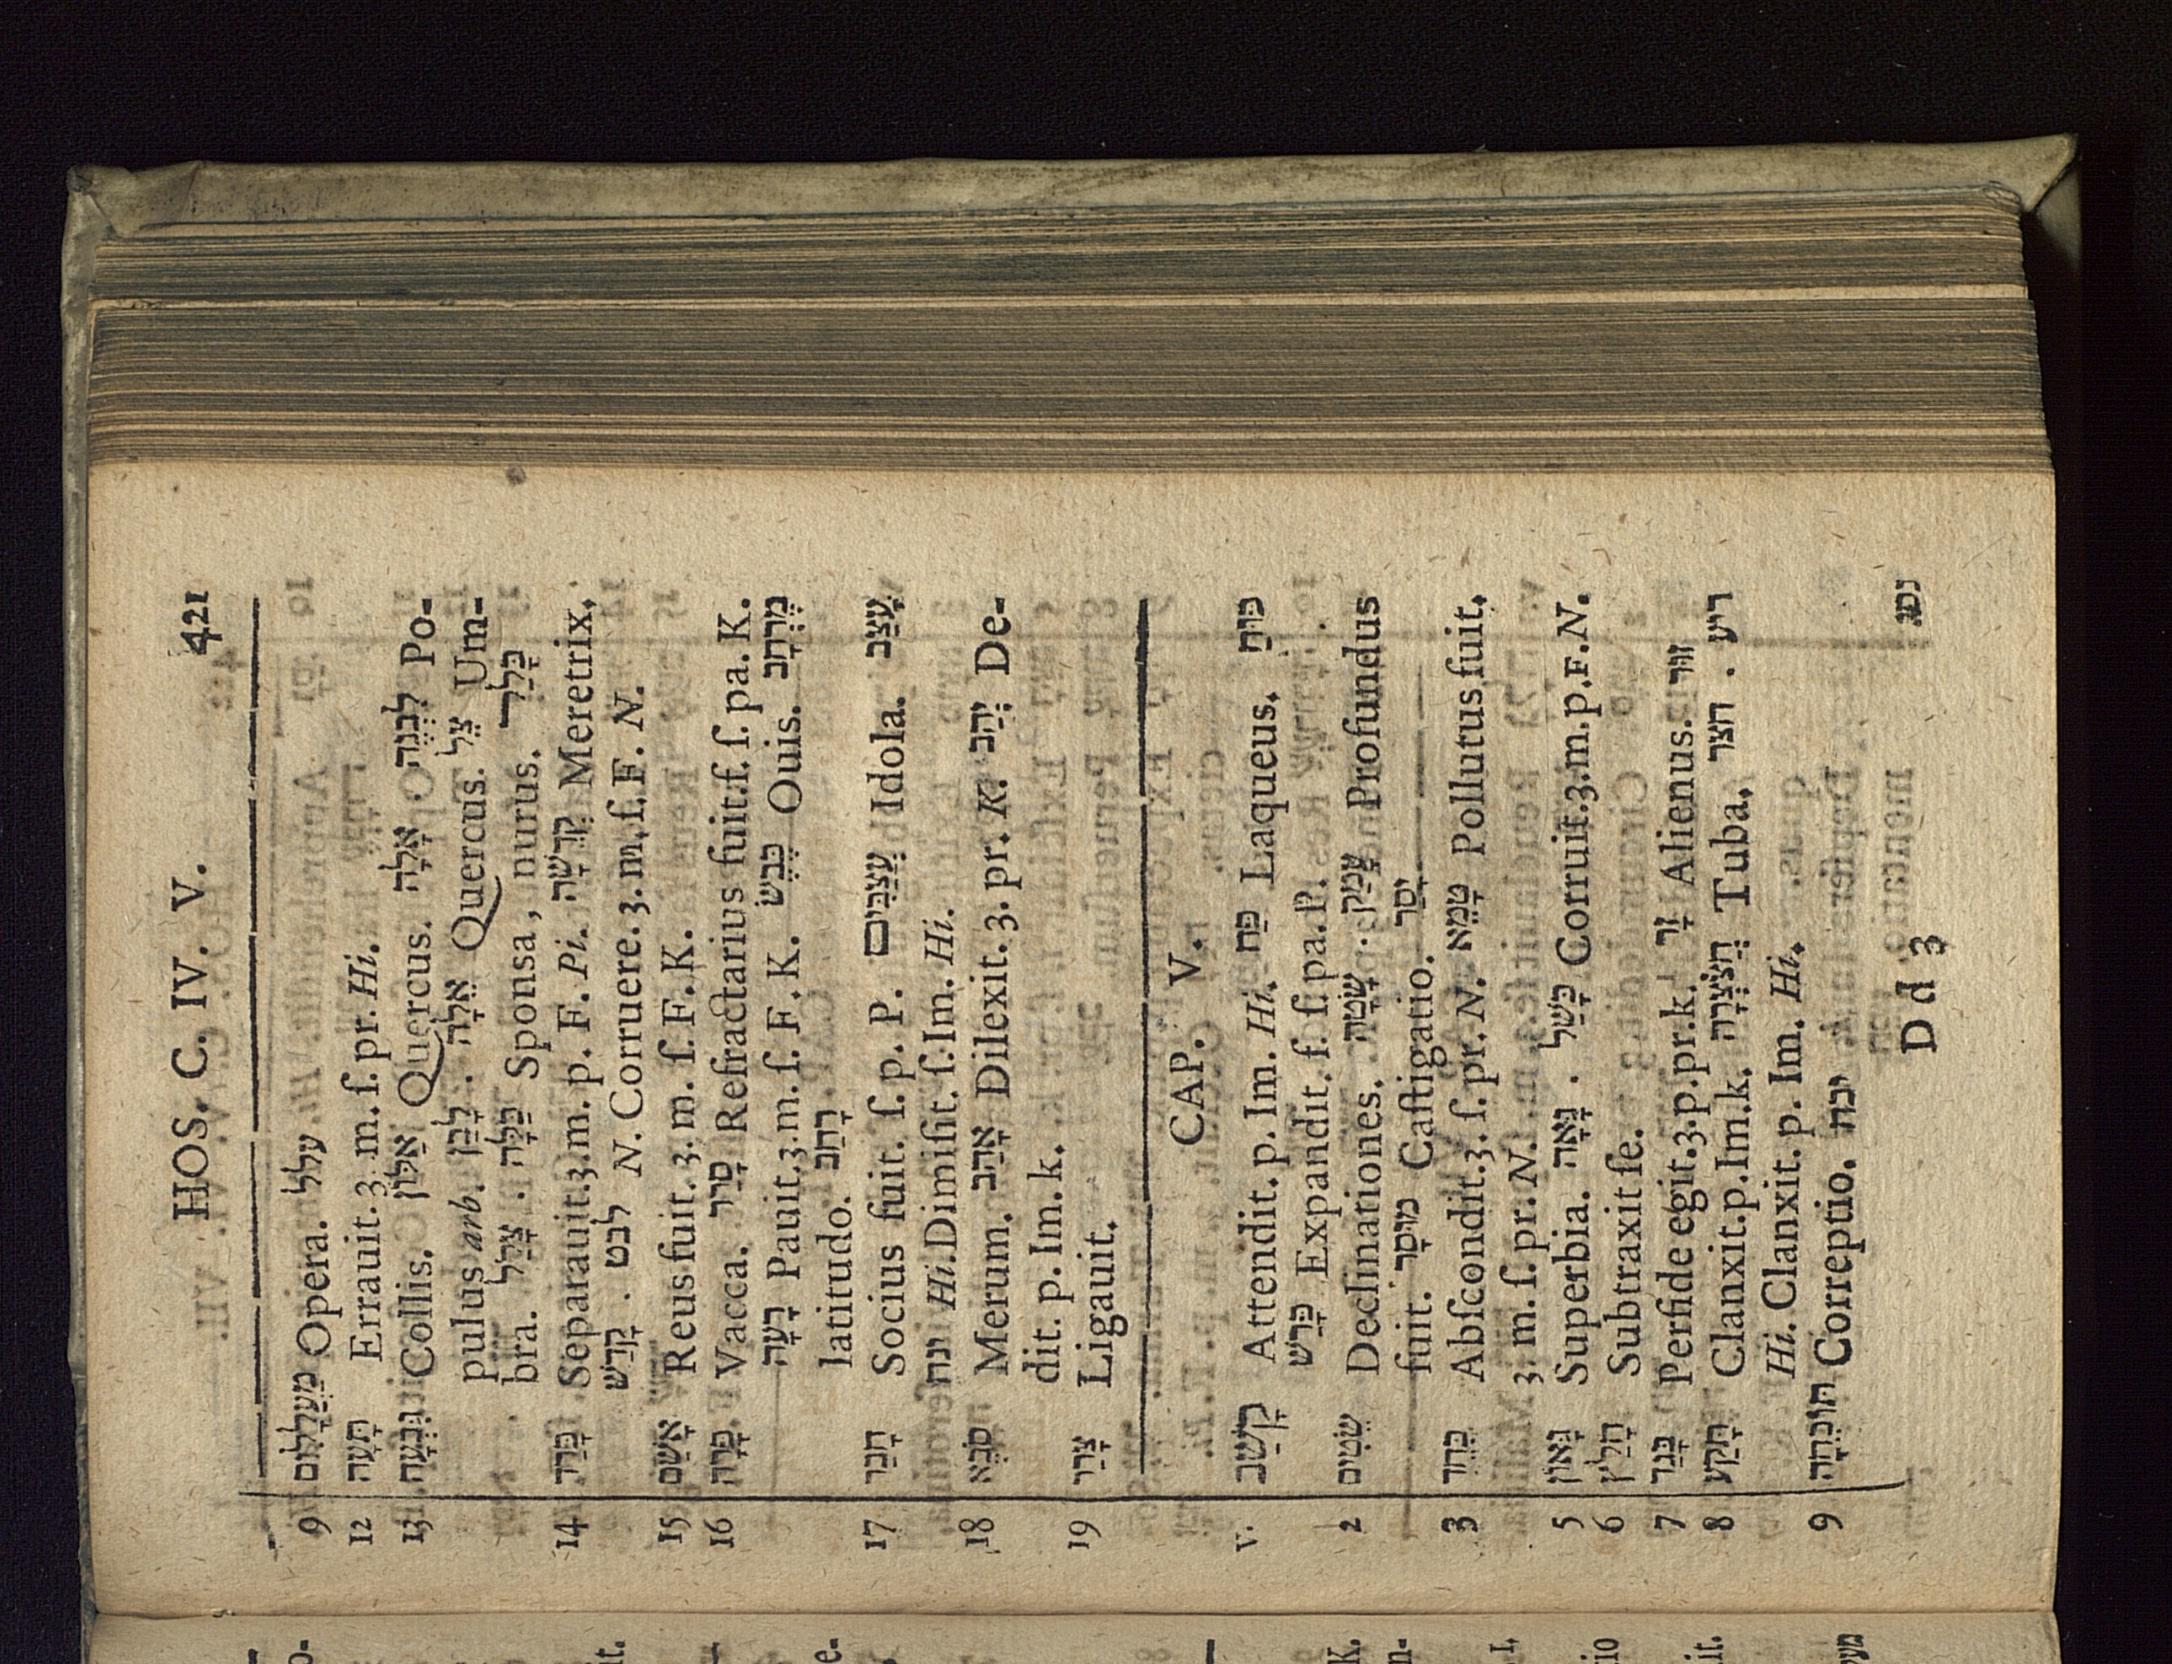 HOS. C. IV. V. 421
9 מַעֲלָלִים Opera. עלל
12 תָּעָה Errauit. 3. m. ſ. pr. Hi.
13 גִּבְעָה Collis. אַלּוֹן Quercus. אָלָה לִבְנֶה Po-
pulus arb. לָבַן . אֵלָה Quercus. צֵל Um-
bra. צָלַל . כַּלָּה Sponsa, nurus. כָּלַל
14 פָּרַד Separauit. 3. m. p. F. Pi. קְדֵשָׁה Meretrix.
קָדַשׁ . לבט N. Corruere. 3. m. ſ. F. N.
15 אָשַׁם Reus fuit. 3. m. ſ. F. K.
16 פָּרָה Vacca. סָרַר Refractarius fuit. f. ſ. pa. K.
רָעָה Pauit. 3. m. ſ. F. K. כֶּבֶשׂ Ouis. מֶרְחָב
latitudo. רָחַב
17 חָבַר Socius fuit. ſ. p. P. עֲצַבִּים Idola. עָצַב
ינח Hi. Dimiſit. ſ. Im. Hi.
18 סֹבֶא Merum. אָהַב Dilexit. 3. pr. K. יָהַב De-
dit. p. Im. k.
19 צָרַר Ligauit.
CAP. V.
V. קָשַׁב Attendit. p. Im. Hi. פַּח Laqueus. פּוּחַ
פָּרַשׂ Expandit. f. ſ. pa. P.
2 שֵׂטִים Declinationes. שָׂטָה . עָמַק Profundus
fuit. מוּסָר Caſtigatio. יָסַר
3 כָּחַד Abſcondit. 3. ſ. pr. N. טָמֵא Pollutus fuit.
3. m. ſ. pr. N.
5 גָּאוֹן Superbia. גָּאָה . כָּשַׁל Corruit. 3. m. p. F. N.
6 חָלַץ Subtraxit ſe.
7 בָּגַד Perfide egit. 3. p. pr. k. זָר Alienus. זור
8 תָּקַע Clanxit. p. Im. k. חֲצֹצְרָה Tuba. חצר . רוע
Hi. Clanxit. p. Im. Hi.
9 תּוֹכֵחָה Correptio. יכח
D d 3